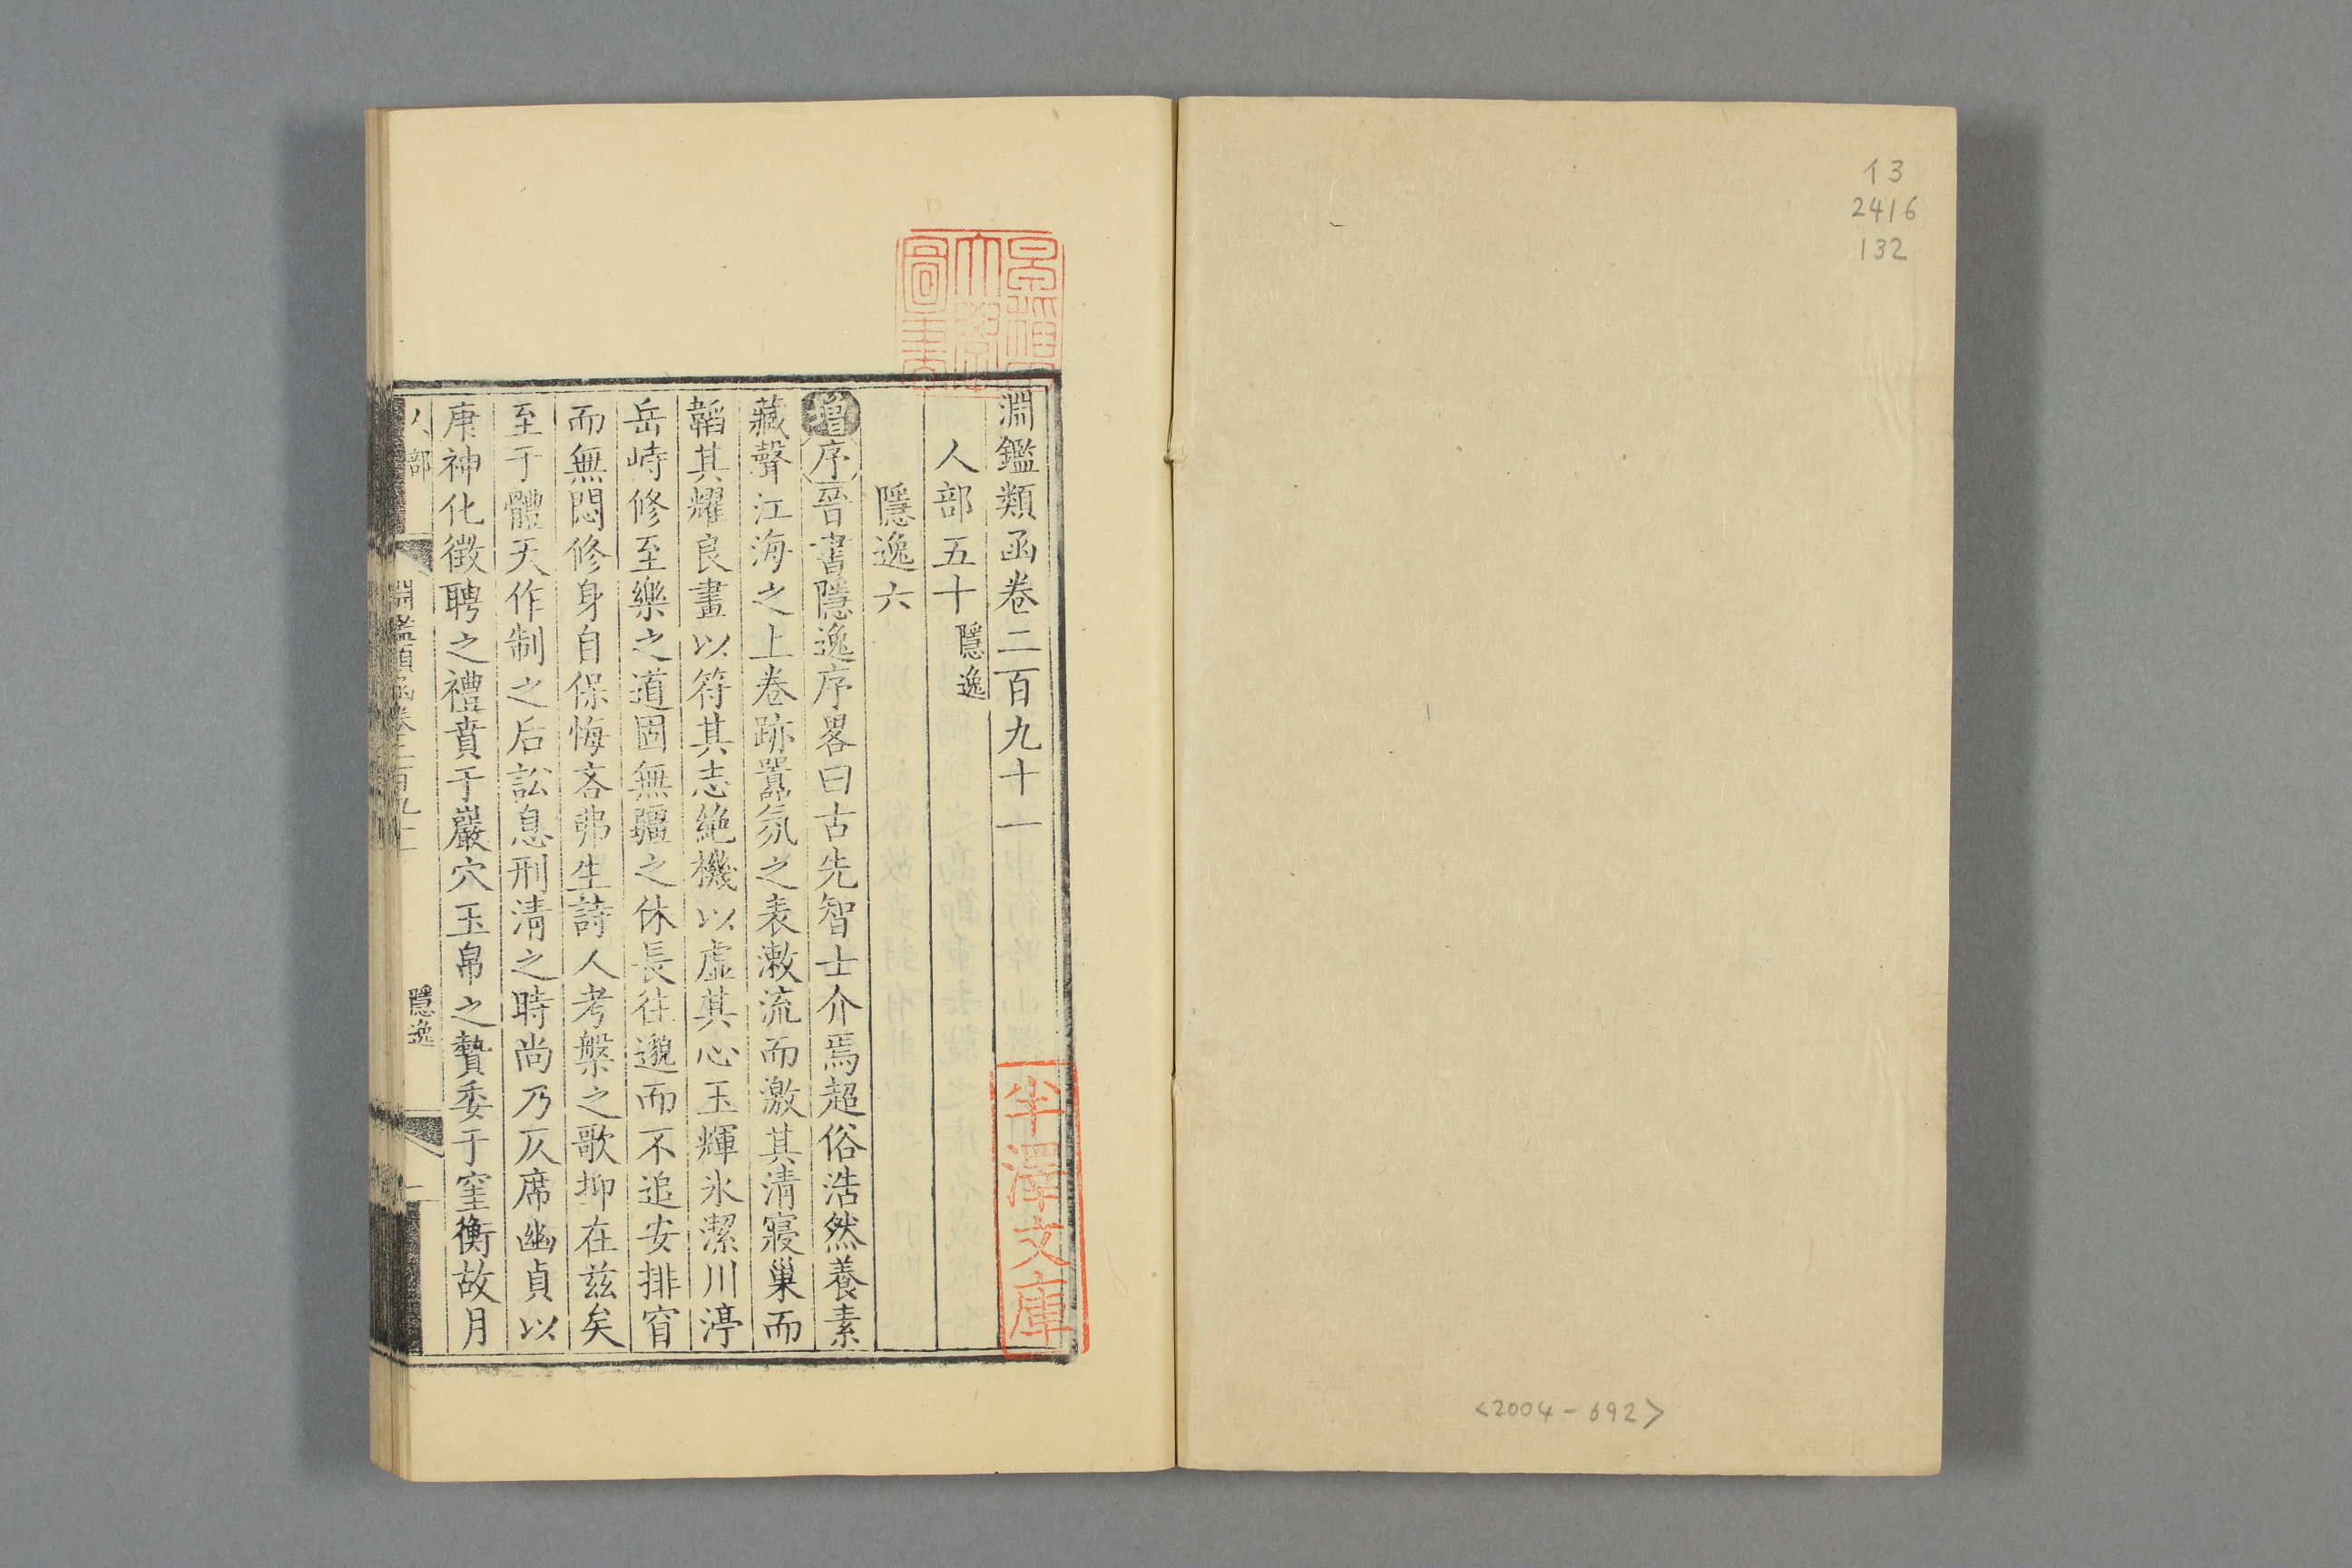 イ3
2416
132
<2004-692>
淵鑑類函卷二百九十一
人部五十隱逸
隱逸六
增序晉書隱逸序畧曰古先智士介焉超俗浩然養素
藏聲江海之上卷跡囂氛之表漱流而激其清寢巢而
韜其耀良畫以符其志絶機以虛其心玉輝氷潔川渟
岳峙修至樂之道固無疆之休長往邈而不追安排窅
而無悶修身自保悔吝弗生詩人考槃之歌抑在茲矣
至于體天作制之后訟息刑清之時尚乃仄席幽貞以
康神化徵聘之禮賁于巖穴玉帛之贄委于窐衡故月
人部 淵鑑類函卷二百九十一 隱逸 一
半澤文庫